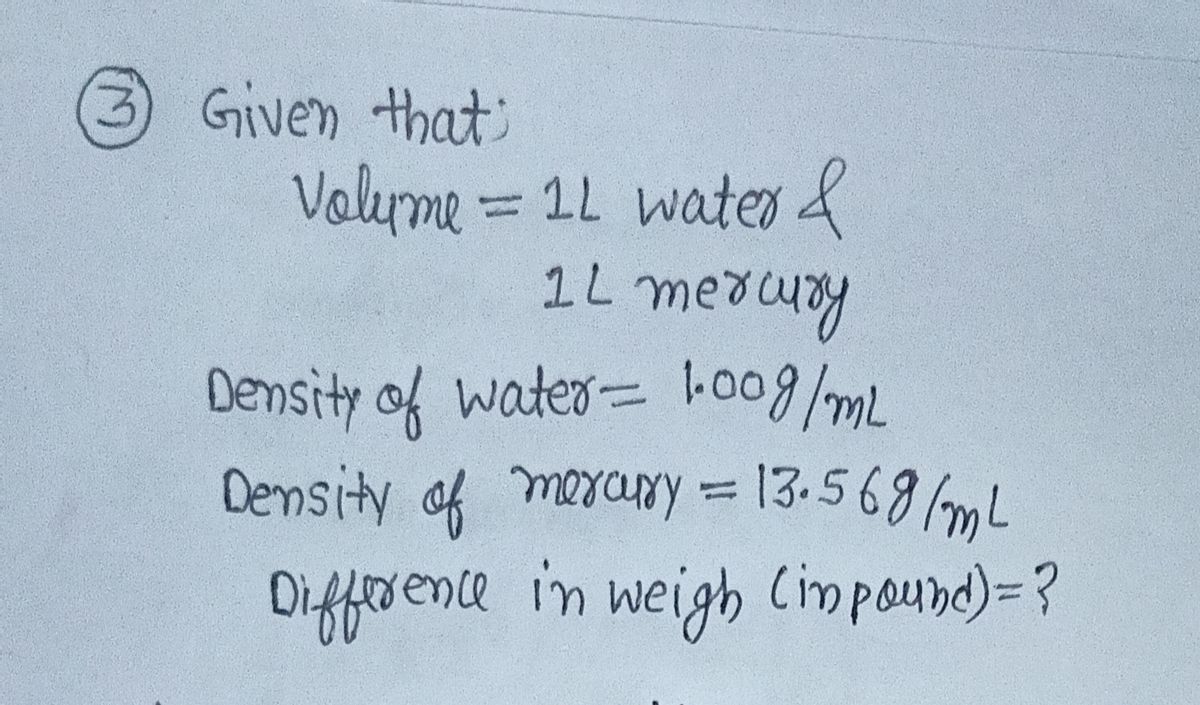 ③ Given that;
Volume = 1L water &
1L mercury
Density of water = 1.00g/mL
Density of mercury = 13.56g/mL
Difference in weigh (in pound) = ?